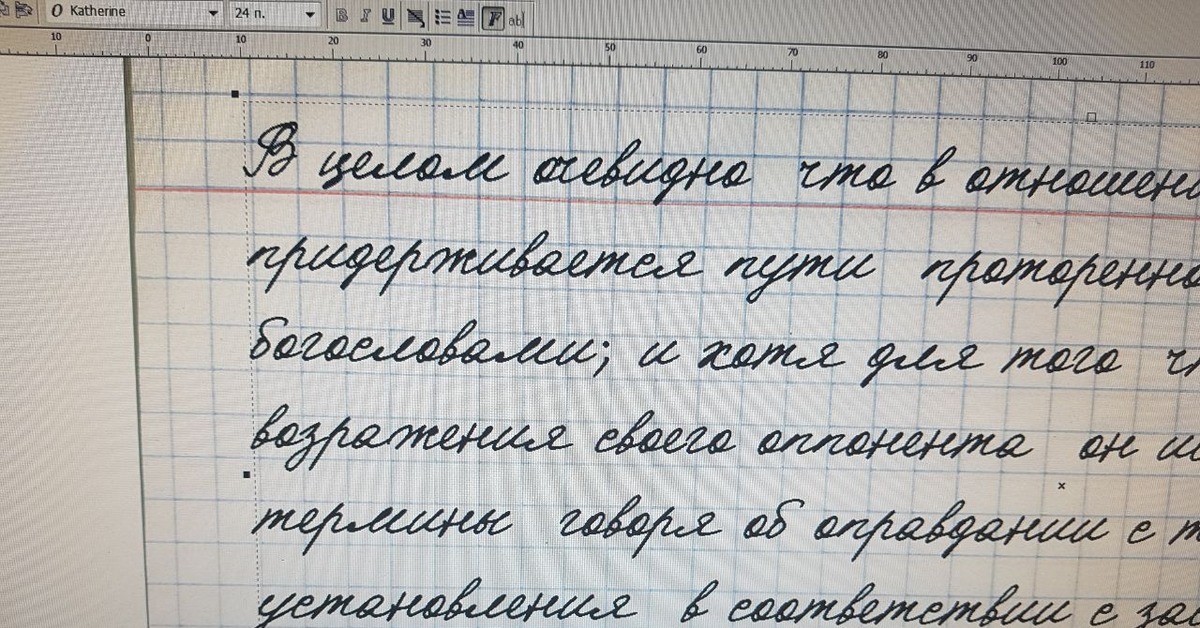 Katherine 24 п. B I U F ab
10 0 10 20 30 40 50 60 70 80 90 100 110
В целом очевидно что в
придерживается пути
богословами; и хотя для того
возражения своего оппонента он
термины говоря об оправдании с
установления в соответствии с